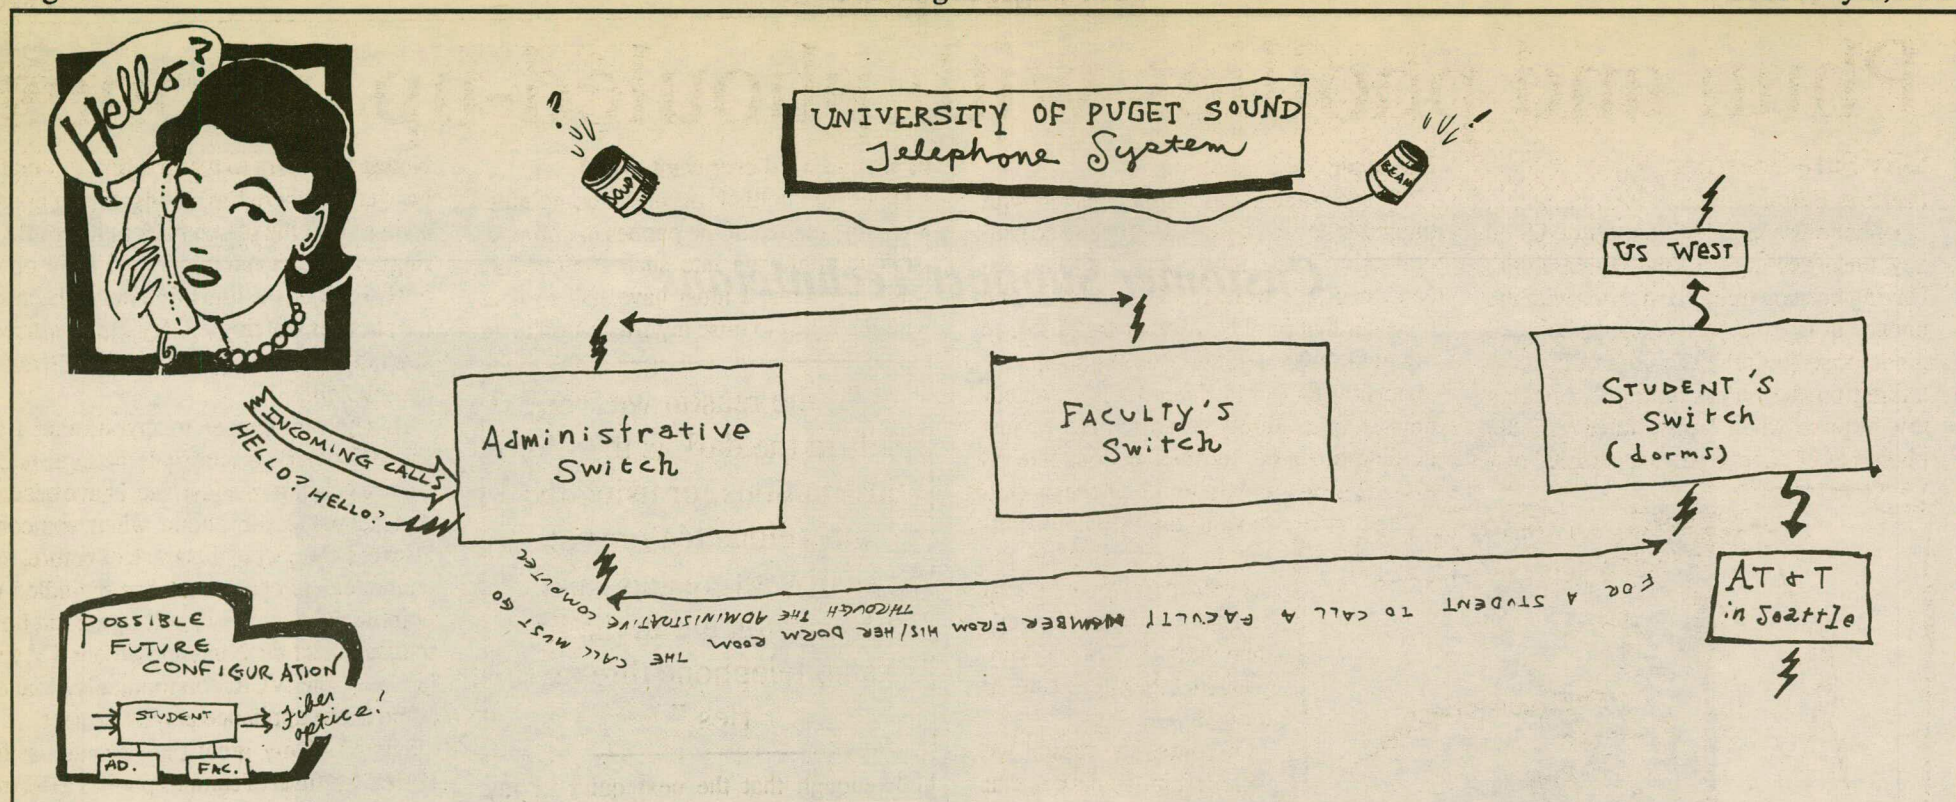 Hello?
UNIVERSITY OF PUGET SOUND
Telephone System
?
SOUP
BEAM
!
US West
INCOMING CALLS
HELLO? HELLO?
Administrative
Switch
FACULTY'S
Switch
STUDENT'S
Switch
(dorms)
AT & T
in Seattle
FOR A STUDENT TO CALL A FACULTY MEMBER FROM HIS/HER DORM ROOM THE CALL MUST GO
THROUGH THE ADMINISTRATIVE COMPUTER
POSSIBLE
FUTURE
CONFIGURATION
STUDENT
Fiber
optics!
AD.
FAC.